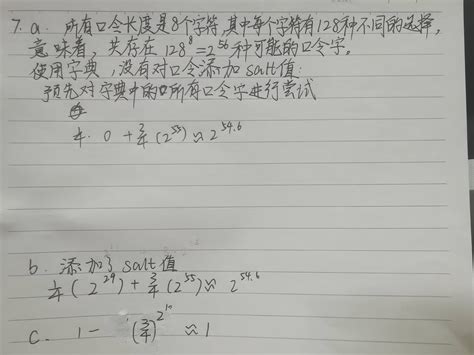 7. a. 所有口令长度是8个字符,其中每个字符有128种不同的选择,
意味着,共存在 128⁸=2⁵⁶ 种可能的口令字。
使用字典,没有对口令添加salt值:
预先对字典中的所有口令字进行尝试
¼· 0 + ¾(2⁵⁵) ≈ 2⁵⁴·⁶
b. 添加了salt值
¼(2²⁹) + ¾(2⁵⁵) ≈ 2⁵⁴·⁶
C. 1 - (¾)²¹⁰ ≈ 1